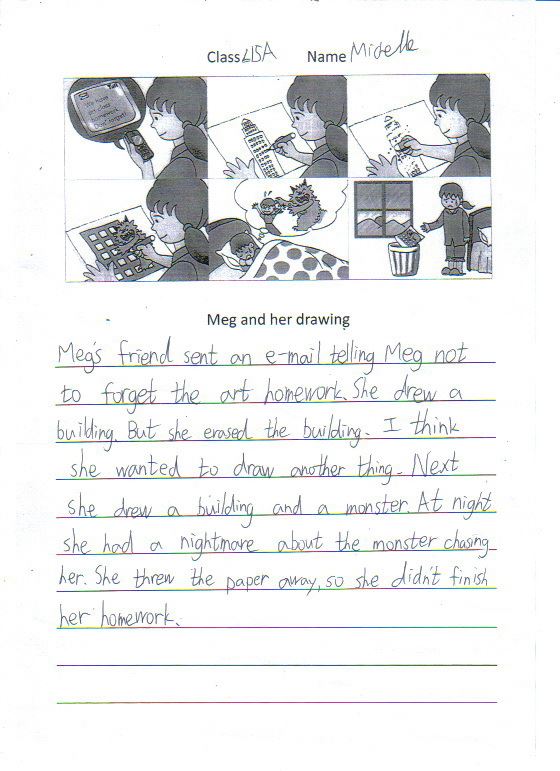 Class L15A Name Michelle
We have
art class
homework.
Don't forget!
Meg and her drawing
Meg's friend sent an e-mail telling Meg not
to forget the art homework. She drew a
building. But she erased the building. I think
she wanted to draw another thing. Next
she drew a building and a monster. At night
she had a nightmare about the monster chasing
her. She threw the paper away, so she didn't finish
her homework.